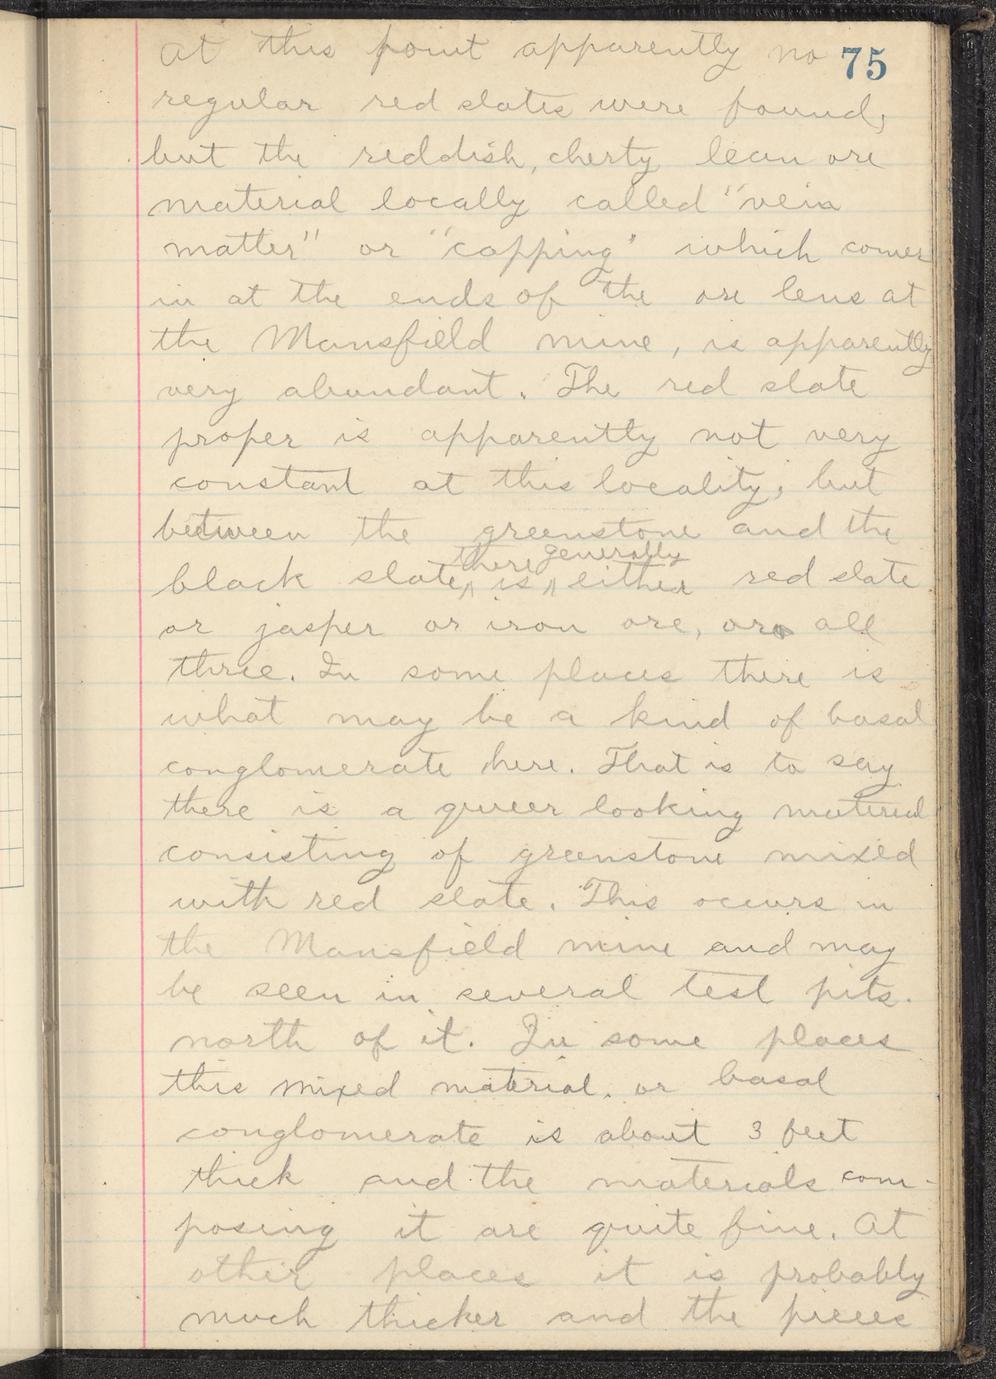 75
At this point apparently no
regular red slates were found,
but the reddish, cherty lean ore
material locally called "vein
matter" or "capping" which comes
in at the ends of the ore lens at
the Mansfield mine, is apparently
very abundant. The red slate
proper is apparently not very
constant at this locality, but
between the greenstone and the
there generally
black slate, ^ is ^ either red slate
or jasper or iron ore, or all
three. In some places there is
what may be a kind of basal
conglomerate here. That is to say
there is a queer looking material
consisting of greenstone mixed
with red slate. This occurs in
the Mansfield mine and may
be seen in several test pits
north of it. In some places
this mixed material or basal
conglomerate is about 3 feet
thick and the materials com-
posing it are quite fine. At
other places it is probably
much thicker and the pieces